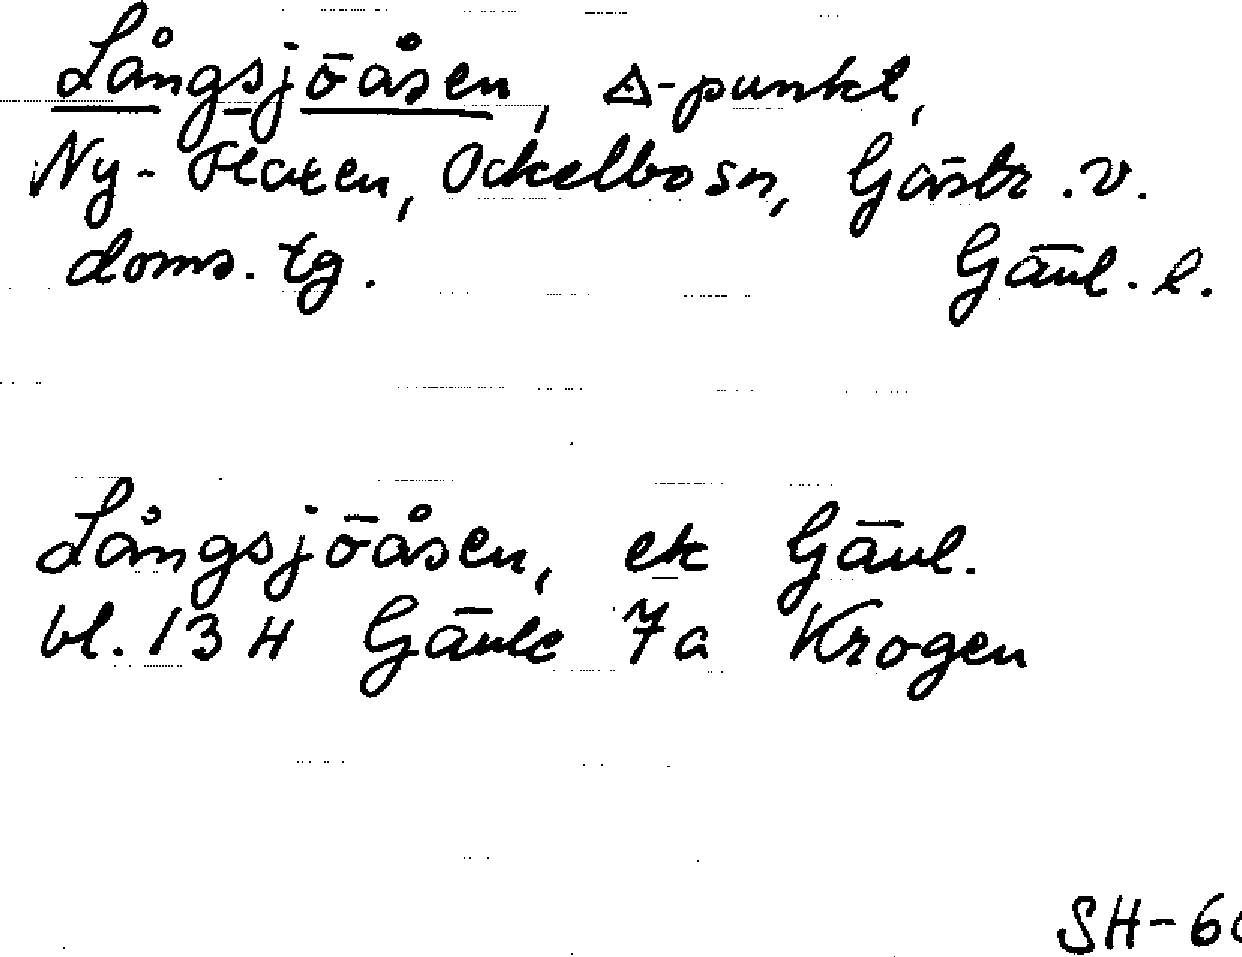 Långsjöåsen, △-punkt,
Ny-Flaten, Ockelbo sn, Gästr. v.
doms. tg. Gävl. l.
Långsjöåsen, ek Gävl.
bl. 13 H Gävle 7a Krogen
SH-6